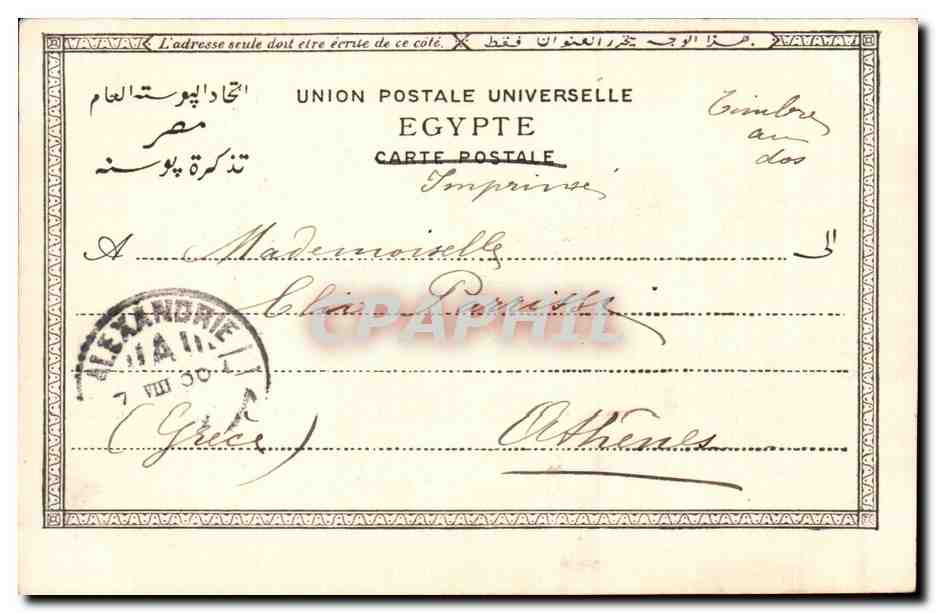 L'adresse seule doit etre écrite de ce côté.
هذا الوجه يحرر العنوان فقط.
اتحاد البوسته العام
مصر
تذكرة بوسته
UNION POSTALE UNIVERSELLE
EGYPTE
CARTE POSTALE
Imprimé
Timbre
au
dos
A Mademoiselle الى
ALEXANDRIE
7 VIII 00
(Grèce) Athènes
CPAPHIL